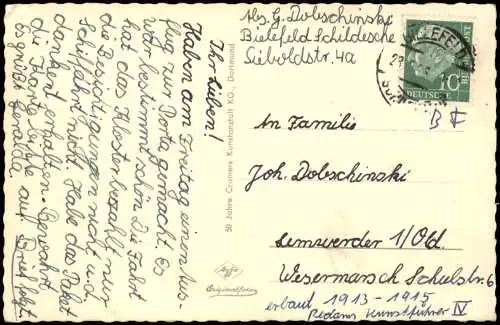 Ihr Lieben!
Haben am Freitag einen Aus-
flug zur Porta gemacht. Es
war bestimmt schön. Die Fahrt
hat das Kloster bezahlt nur
die Besichtigungen nicht u. d.
Schiffahrt nicht. Habe das Paket
dankend erhalten. Bewahrt
die Karte bitte auf. Brief folgt.
Es grüßt Geralde
50 Jahre Cramers Kunstanstalt KG., Dortmund
Agfa
Originalfoto
Abs. G. Dobschinski
Bielefeld Schildesche
Sieboldstr. 4a
BIELEFELD
DEUTSCHE
BUNDESPOST
10
An Familie
Joh. Dobschinski
Lemwerder 1/Old.
Wesermarsch Schulstr. 6
erbaut 1913-1915
Reclams Kunstführer IV